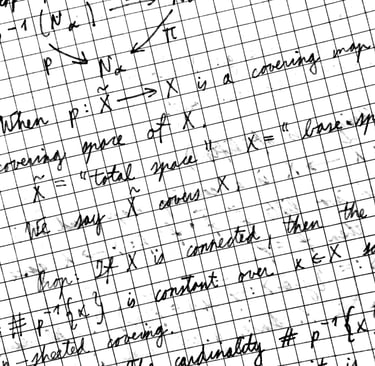 p⁻¹(Nα)
p π
Nα
When p: X̃ → X is a covering map
covering space of X.
X̃ = "total space" X = "base sp
We say X̃ covers X
Prop: If X is connected, then the
# p⁻¹{x} is constant over x ∈ X
n-sheeted covering.
cardinality # p⁻¹{x